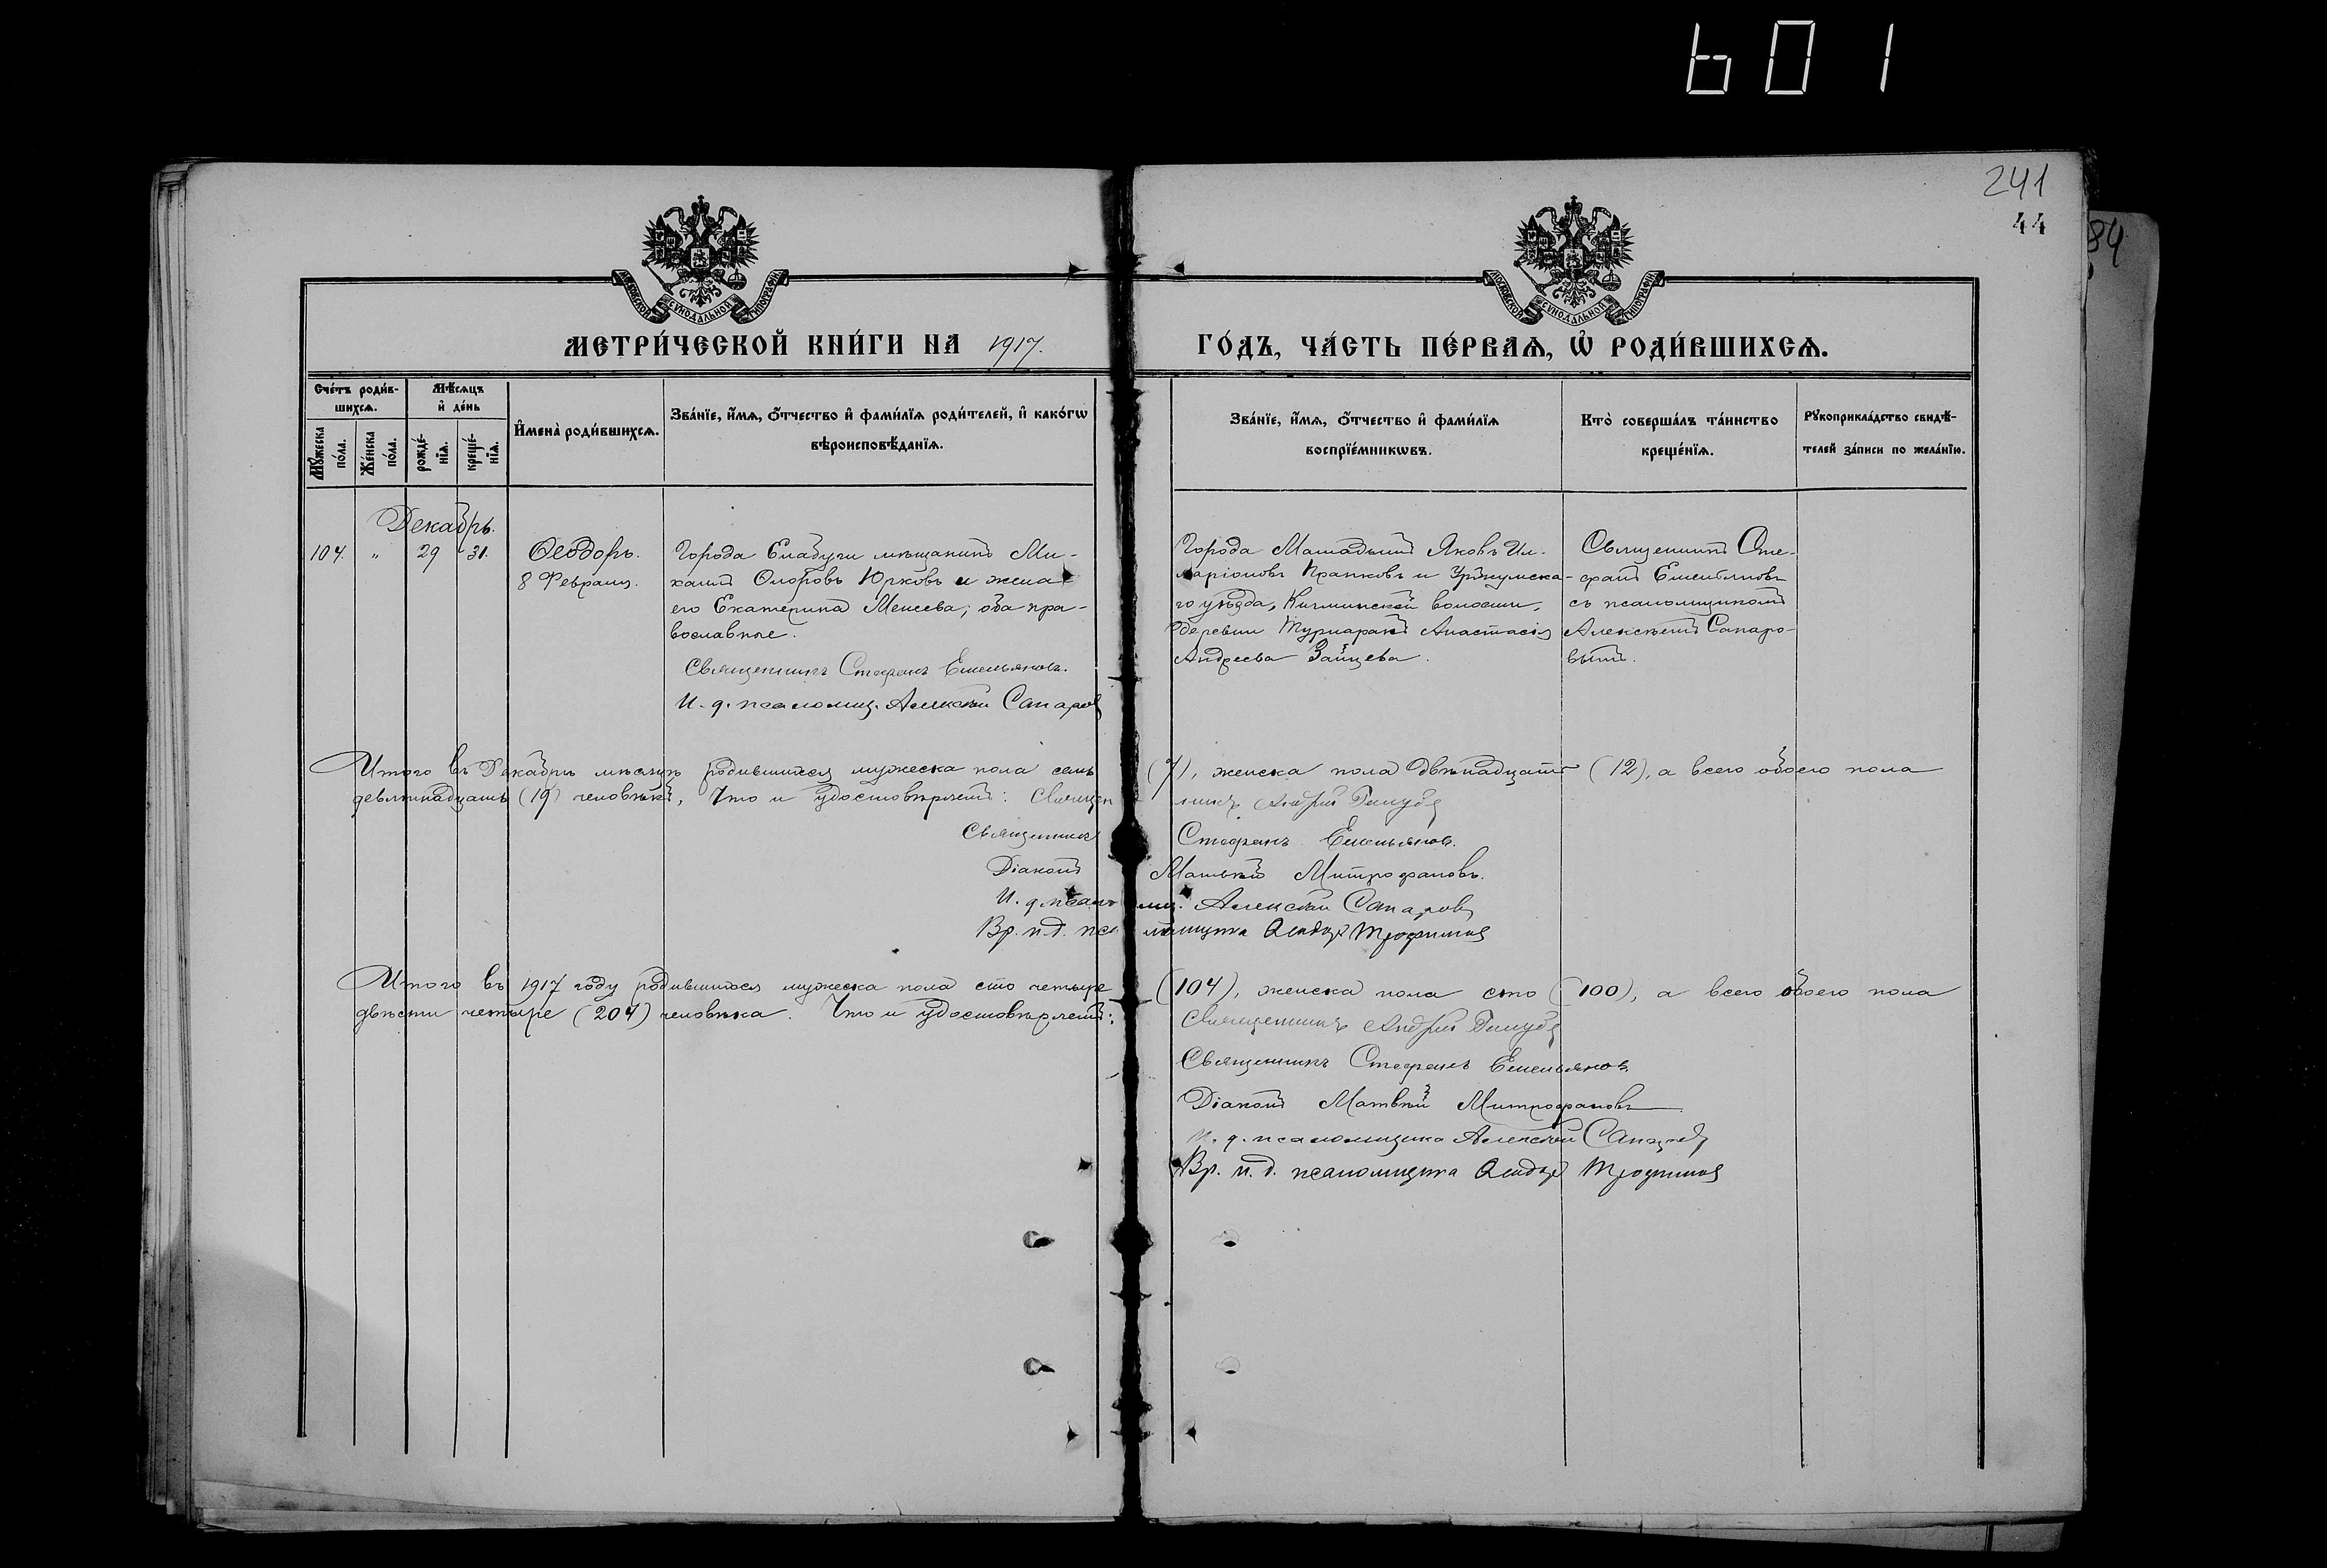 601
241
44
84
МОСКОВСКОЙ СѴНОДАЛЬНОЙ ТИПОГРАФІИ
МОСКОВСКОЙ СѴНОДАЛЬНОЙ ТИПОГРАФІИ
МЕТРИ́ЧЕСКОЙ КНИ́ГИ НА 1917.
ГО́ДЪ, ЧА́СТЬ ПЕ́РВАѦ, Ѡ҆ РОДИ́ВШИХСѦ.
Сче́тъ роди́в-
шихсѧ.
Мѣ́сѧцъ
и҆ де́нь
Мꙋ́жеска по́ла.
Же́нска по́ла.
рожде́-
нїѧ.
креще́-
нїѧ.
И҆мена̀ роди́вшихсѧ.
Зва́нїе, и҆́мѧ, ѻ҆́тчество и҆ фами́лїѧ роди́телей, и҆ како́гѡ
вѣроисповѣ́данїѧ.
Зва́нїе, и҆́мѧ, ѻ҆́тчество и҆ фами́лїѧ
воспрїе́мникѡвъ.
Кто̀ соверша́лъ та́инство
креще́нїѧ.
Рꙋкоприкла́дство свидѣ́-
телей за́писи по жела́нїю.
Декабрь.
104. „ 29 31. Ѳеодоръ.
8 Февраля.
Города Елабуги мѣщанинъ Ми-
хаилъ Юрковъ и жена
его Екатерина ; оба пра-
вославные.
Священникъ Стефанъ Емельяновъ.
И. д. псаломщ. Алексѣй Сапаровъ
Города Мамадышъ Яковъ Ил-
ларіоновъ и Уржумска-
го уѣзда, Кичминской волости,
деревни Анастасія
Андреева Зайцева.
Священникъ Сте-
фанъ Емельяновъ
съ псаломщикомъ
Алексѣемъ Сапаро-
вымъ.
Итого въ Декабрѣ мѣсяцѣ родившихся мужеска пола семь (7), женска пола двѣнадцать (12), а всего обоего пола
девятнадцать (19) человѣкъ. Что и удостовѣряемъ: Священникъ Андрей
Священникъ Стефанъ Емельяновъ.
Діаконъ Матвѣй Митрофановъ.
И. д. псаломщ. Алексѣй Сапаровъ
Вр. и. д. псаломщика Трофимовъ
Итого въ 1917 году родившихся мужеска пола сто четыре (104), женска пола сто (100), а всего обоего пола
двѣсти четыре (204) человѣка. Что и удостовѣряемъ:
Священникъ Андрей
Священникъ Стефанъ Емельяновъ
Діаконъ Матвѣй Митрофановъ
И. д. псаломщика Алексѣй Сапаровъ
Вр. и. д. псаломщика Трофимовъ